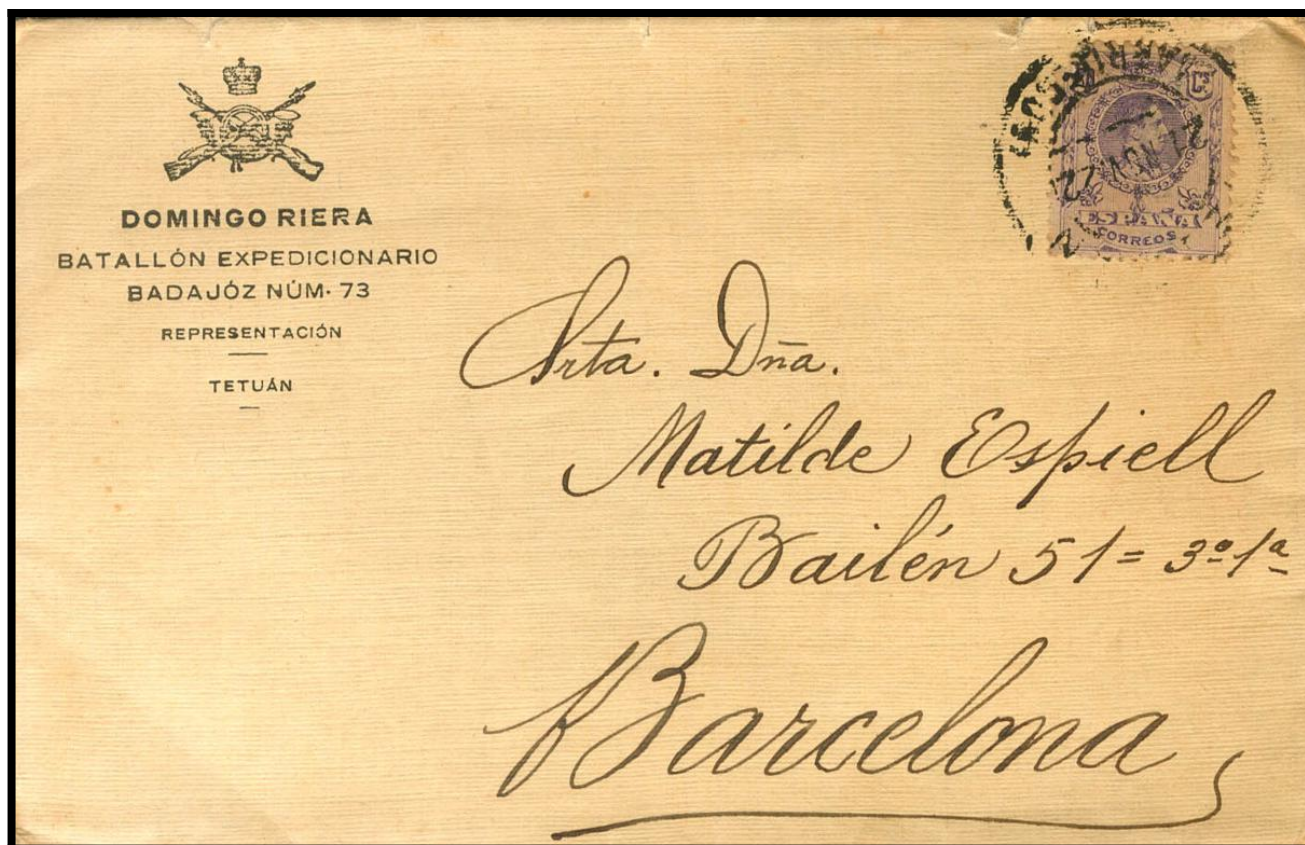 DOMINGO RIERA
BATALLÓN EXPEDICIONARIO
BADAJÓZ NÚM. 73
REPRESENTACIÓN
TETUÁN
ESPAÑA
CORREOS
Srta. Dña.
Matilde Espiell
Bailén 51 = 3º 1ª
Barcelona